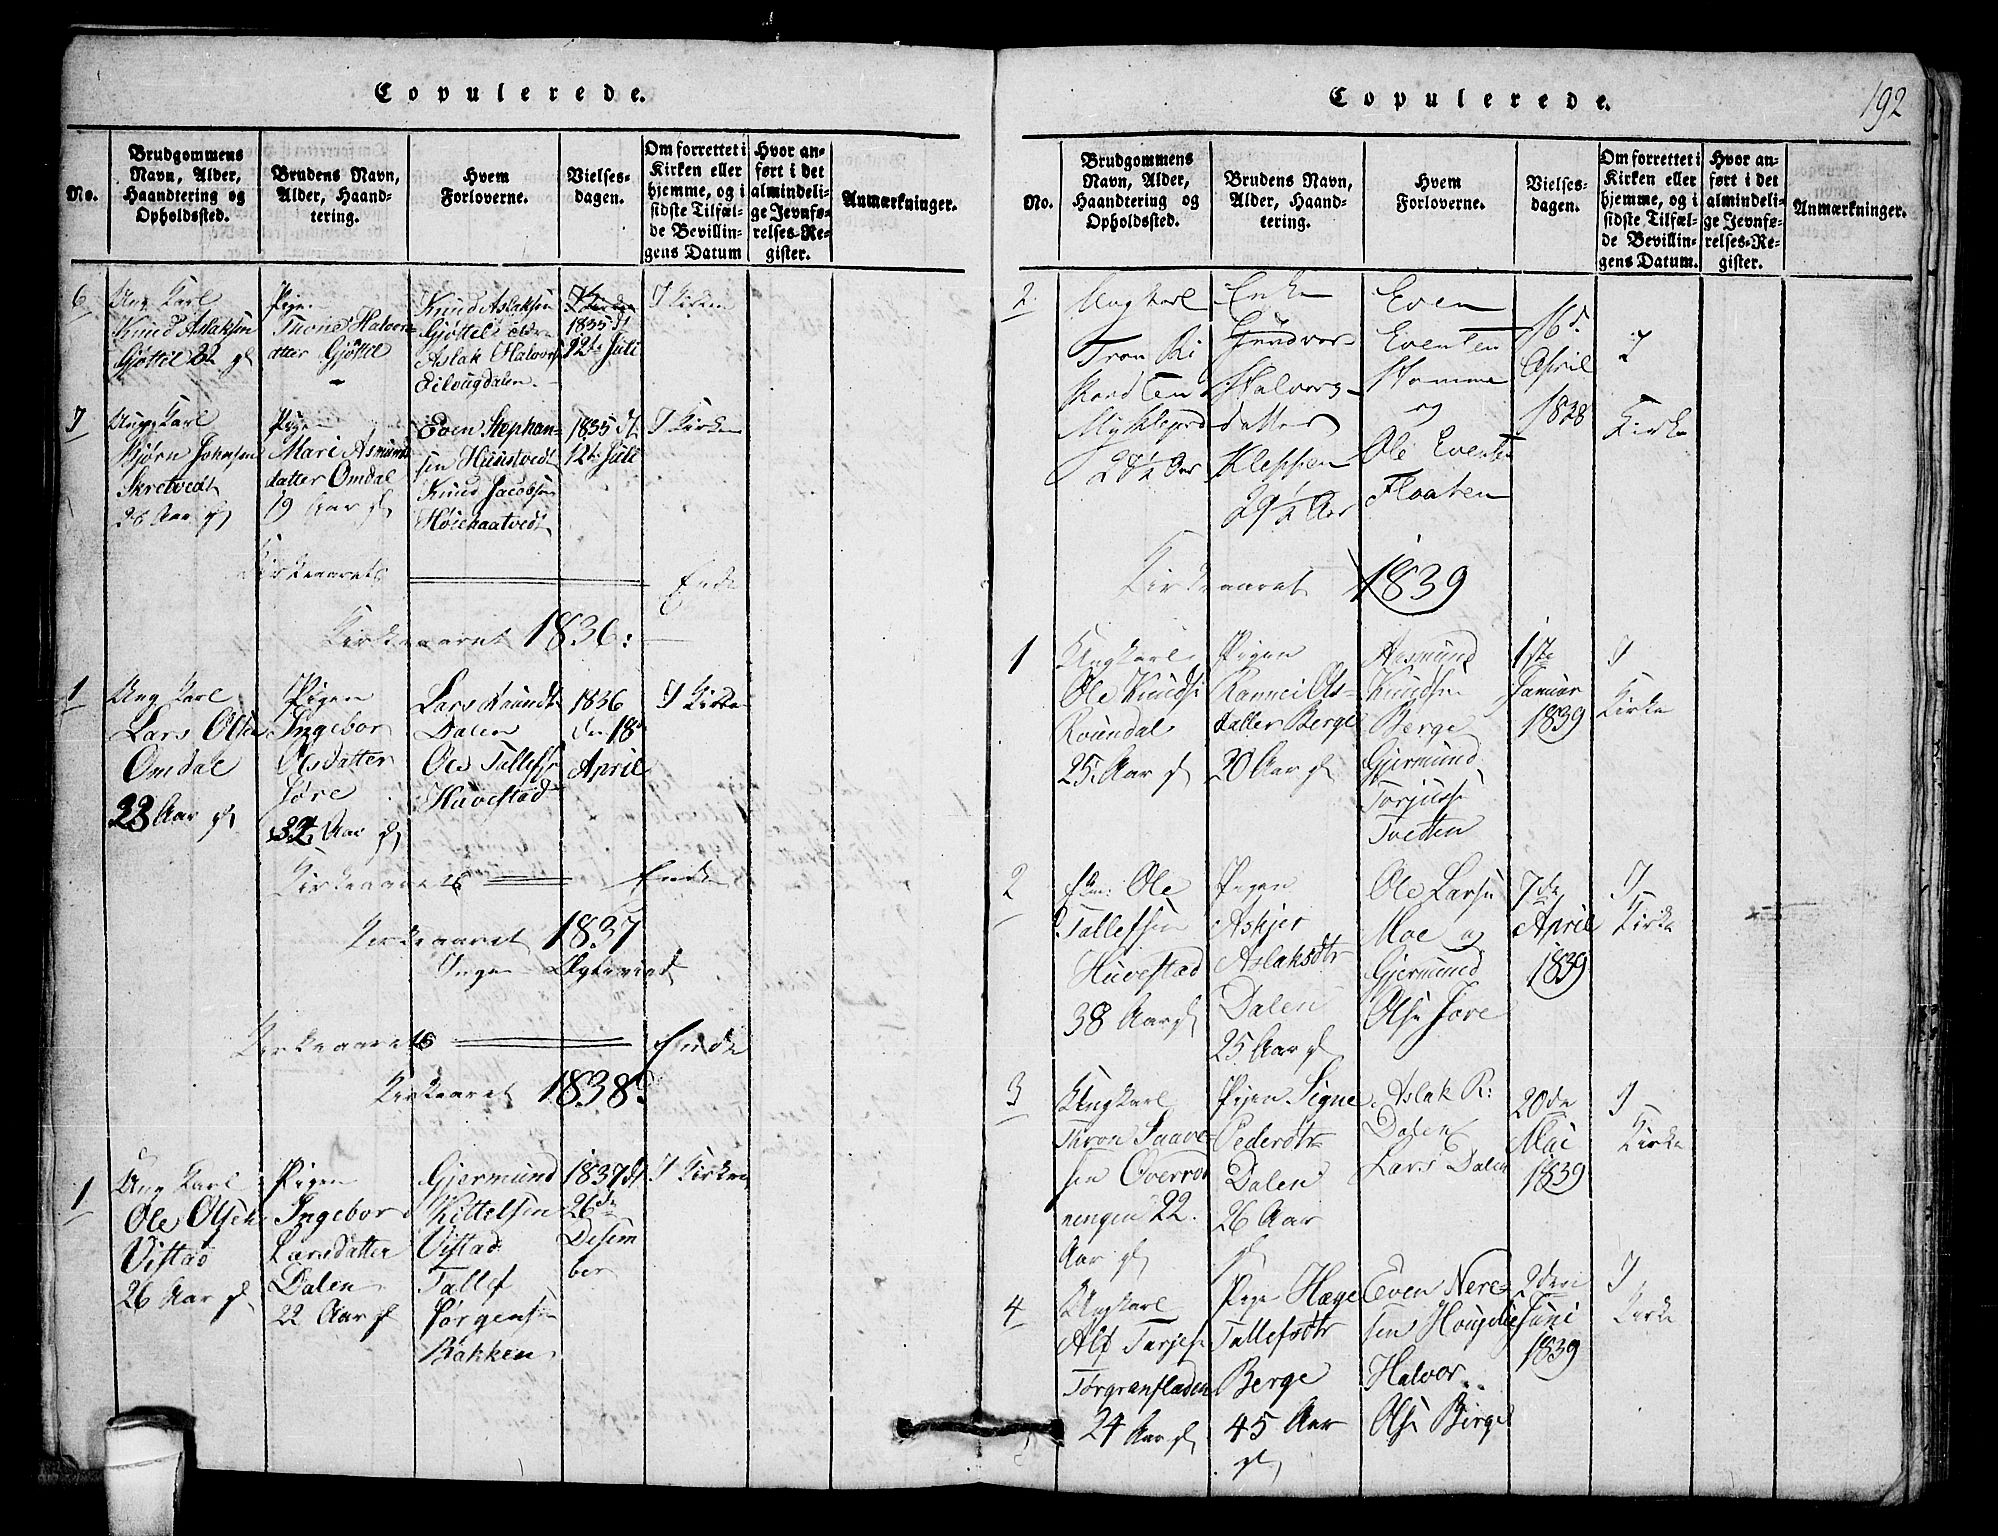 Copulerede.
No.
Brudgommens Navn, Alder, Haandtering og Opholdssted.
Brudens Navn, Alder, Haandtering.
Hvem Forloverne.
Vielsesdagen.
Om forrettet i Kirken eller hjemme, og i sidste Tilfælde Bevillingens Datum
Hvor anført i det almindelige Jevnførelses-Register.
Anmærkninger.
6
Ung Karl
Knud Aslaksen
Gjøttil 32 gl
Pige
Thone Halvors-
datter Gjøttil
Knud Aslaksen
Gjøttil ældre
Aslak Halvors
1835 d
12te Juli
I Kirken
7
Ung Karl
Bjørn Johnsen
Skretvedt
Aar gl
Pige
Mari Asmunds
datter Omdal
19 Aar gl
Even Stephan-
sen Hunstvedt
Knud Jacobsen
1835 d
12te Juli
I Kirken
Kirkeaarets Ende
Kirkeaaret 1836:
1
Ung Karl
Lars Olsen
Omdal
23 Aar gl
Pigen
Ingebor
Olsdatter
Jore
32 Aar gl
Lars Knuds
Dalen
Ole Tallefs
Huvestad
1836
den 18
April
I Kirke
Kirkeaarets Ende
Kirkeaaret 1837
Ingen
Kirkeaarets Ende
Kirkeaaret 1838
1
Ung Karl
Ole Olsen
Vistad
26 Aar gl
Pigen
Ingebor
Larsdatter
Dalen
22 Aar gl
Gjermund
Kittelsen
Vistad
Tallef
Jørgensen
Bakken
1837 d
26de
Desem
ber
I Kirken
Copulerede.
192
No.
Brudgommens Navn, Alder, Haandtering og Opholdssted.
Brudens Navn, Alder, Haandtering.
Hvem Forloverne.
Vielsesdagen.
Om forrettet i Kirken eller hjemme, og i sidste Tilfælde Bevillingens Datum.
Hvor anført i det almindelige Jevnførelses-Register.
Anmærkninger.
2
Ungkarl
Tron
28½ Aar
Enke
Gundvor
Halvors-
datter
Kleppen
29½ Aar
Even
Evensen
og
Ole Evensen
Floaten
16
April
1838
I
Kirke
Kirkeaaret 1839
1
Ungkarl
Ole Knudse
Roundal
25 Aar gl
Pigen
Rannei As-
datter Berge
20 Aar gl
Aasmund
Knudsen
Berge
Gjermund
Torjusse
Tveten
1ste
Januar
1839
I
Kirke
2
Ole
Tallefsen
Huvestad
38 Aar gl
Pigen
Askjer
Aslaksdtr
Dalen
25 Aar gl
Ole Larsen
Moe og
Gjermund
Olse Jore
7de
April
1839
I
Kirke
3
Ungkarl
Thron Saave
sen Overrøn
ningen 22
Aar gl
Pigen Signe
Pedersdtr
Dalen
26 Aar
gl
Aslak R:
Dalen
Lars Dalen
20de
Mai
1839
I
Kirke
4
Ungkarl
Alf Tarjese
Tørgransladen
24 Aar gl
Pige Hæge
Tallefsdtr
Berge
45 Aar
gl
Even Nere-
sen
Halvor
Olse Berge
2den
Juni
1839
I
Kirke